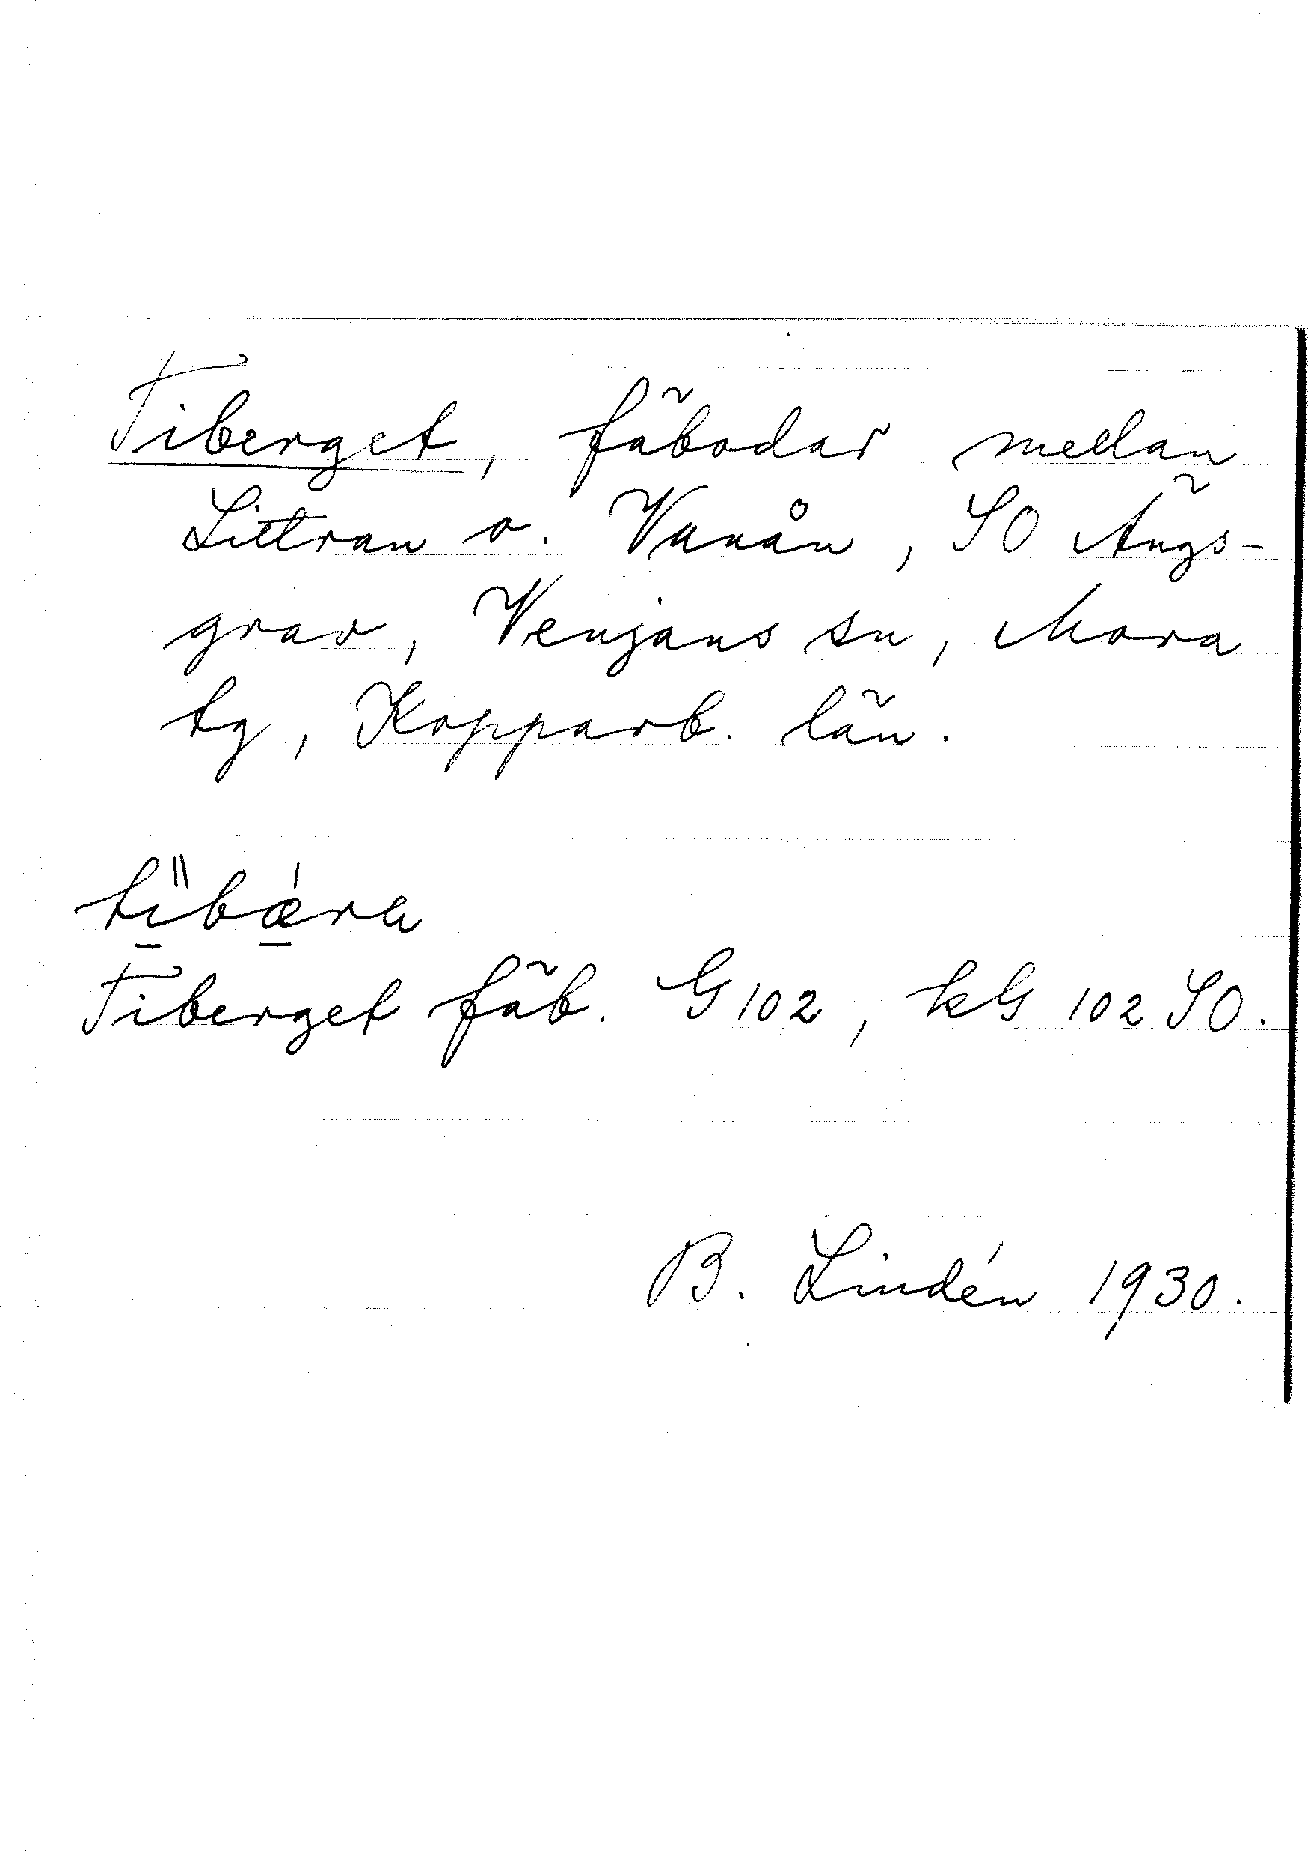 Tiberget, fäbodar mellan
Littran o. Vanån, SO Ängs-
grav, Venjans sn, Mora
tg, Kopparb. län.
tı̋bǽra
Tiberget fäb. G102, kG 102 SO.
B. Lindén 1930.